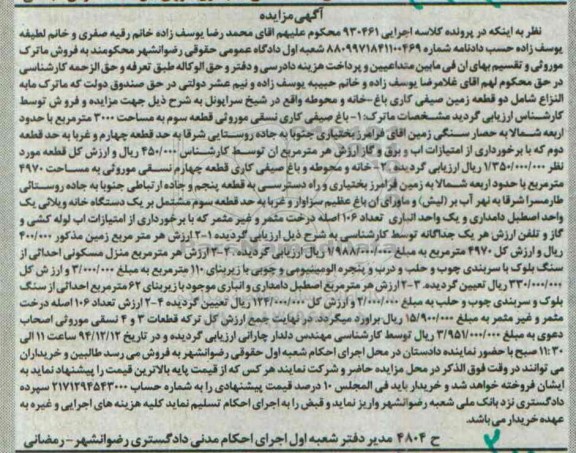 آگهی مزایده
نظر به اینکه در پرونده کلاسه اجرایی ۹۳۰۴۶۱ محکوم علیهم اقای محمد رضا یوسف زاده خانم رقیه صفری و خانم لطیفه
یوسف زاده حسب دادنامه شماره ۸۸۰۹۹۷۱۸۴۱۱۰۰۴۶۹ شعبه اول دادگاه عمومی حقوقی رضوانشهر محکومند به فروش ماترک
موروثی و تقسیم بهای ان فی مابین متداعیین و پرداخت هزینه دادرسی و دفتر و حق الوکاله طبق تعرفه و حق الزحمه کارشناسی
در حق محکوم لهم اقای غلامرضا یوسف زاده و خانم حبیبه یوسف زاده و نیم عشر دولتی در حق صندوق دولت که ماترک مابه
النزاع شامل دو قطعه زمین صیفی کاری باغ -خانه و محوطه واقع در شیخ سراپونل به شرح ذیل جهت مزایده و فروش توسط
کارشناس ارزیابی گردید مشخصات ماترک: ۱- باغ صیفی کاری نسقی موروثی قطعه سوم به مساحت ۳۰۰۰ مترمربع با حدود
اربعه شمالا به حصار سنگی زمین اقای فرامرز بختیاری جنوبا به جاده روستایی شرقا به حد قطعه چهارم و غربا به حد قطعه
دوم که با برخورداری از امتیازات اب و برق و گاز ارزش هر مترمربع ان توسط کارشناس ۴۵۰/۰۰۰ ریال و ارزش کل قطعه مورد
نظر ۱/۳۵۰/۰۰۰/۰۰۰ ریال ارزیابی گردیده ۲- خانه و محوطه و باغ صیفی کاری قطعه چهارم نسقی موروثی به مساحت ۴۹۷۰
مترمربع با حدود اربعه شمالا به زمین فرامرز بختیاری و راه دسترسی به قطعه پنجم و جاده ارتباطی جنوبا به جاده روستائی
طارمسرا شرقا به نهر آب بر (لیش) و ماورای ان باغ عظیم سزاوار و غربا به حد قطعه سوم مشتمل بر یک دستگاه خانه ویلائی یک
واحد اصطبل دامداری و یک واحد انباری تعداد ۱۰۶ اصله درخت مثمر و غیر مثمر که با برخورداری از امتیازات اب لوله کشی و
گاز و تلفن ارزش هر یک جداگانه توسط کارشناسی به شرح ذیل ارزیابی گردیده ۱-۲ ارزش هر متر مربع زمین مذکور ۴۰۰/۰۰۰
ریال و ارزش کل ۴۹۷۰ مترمربع به مبلغ ۱/۹۸۸/۰۰۰/۰۰۰ ریال ارزیابی گردیده. ۲-۲ ارزش هر مترمربع منزل مسکونی احداثی از
سنگ بلوک با سربندی چوب و حلب و درب و پنجره الومینیومی و چوبی با زیربنای ۱۱۰ مترمربع به مبلغ ۳/۰۰۰/۰۰۰ و ارزش کل
۳۳۰/۰۰۰/۰۰۰ ریال تعیین گردیده. ۳-۲ ارزش هر مترمربع اصطبل دامداری و انباری موجود با زیربنای ۶۲ مترمربع احداثی از سنگ
بلوک و سربندی چوب و حلب به مبلغ ۲/۰۰۰/۰۰۰ و ارزش کل ۱۲۴/۰۰۰/۰۰۰ ریال تعیین گردیده ۴-۲ ارزش تعداد ۱۰۶ اصله درخت
مثمر و غیر مثمر به مبلغ ۱۵/۹۰۰/۰۰۰ ریال براورد میگردد در نهایت جمع ارزش کل ترکه قطعات ۳ و ۴ نسقی موروثی اصحاب
دعوی به مبلغ ۳/۹۵۱/۰۰۰/۰۰۰ ریال توسط کارشناسی مهندس دلدار چارانی ارزیابی گردیده و در تاریخ ۹۴/۱۲/۱۲ ساعت ۱۱ الی
۱۱:۳۰ صبح با حضور نماینده دادستان در محل اجرای احکام شعبه اول حقوقی رضوانشهر به فروش می رسد طالبین و خریداران
می توانند در وقت فوق الذکر در محل مزایده حاضر و شرکت نمایند هر کس که از قیمت پایه بالاترین قیمت را پیشنهاد نماید به
ایشان فروخته خواهد شد و خریدار باید فی المجلس ۱۰ درصد قیمت پیشنهادی را به شماره حساب ۲۱۷۱۲۹۴۵۴۳۰۰۰ سپرده
دادگستری نزد بانک ملی شعبه رضوانشهر واریز نماید و قبض را به اجرای احکام تسلیم نماید کلیه هزینه های اجرایی و غیره به
عهده خریدار می باشد.
ح ۴۸۰۴ مدیر دفتر شعبه اول اجرای احکام مدنی دادگستری رضوانشهر - رمضانی